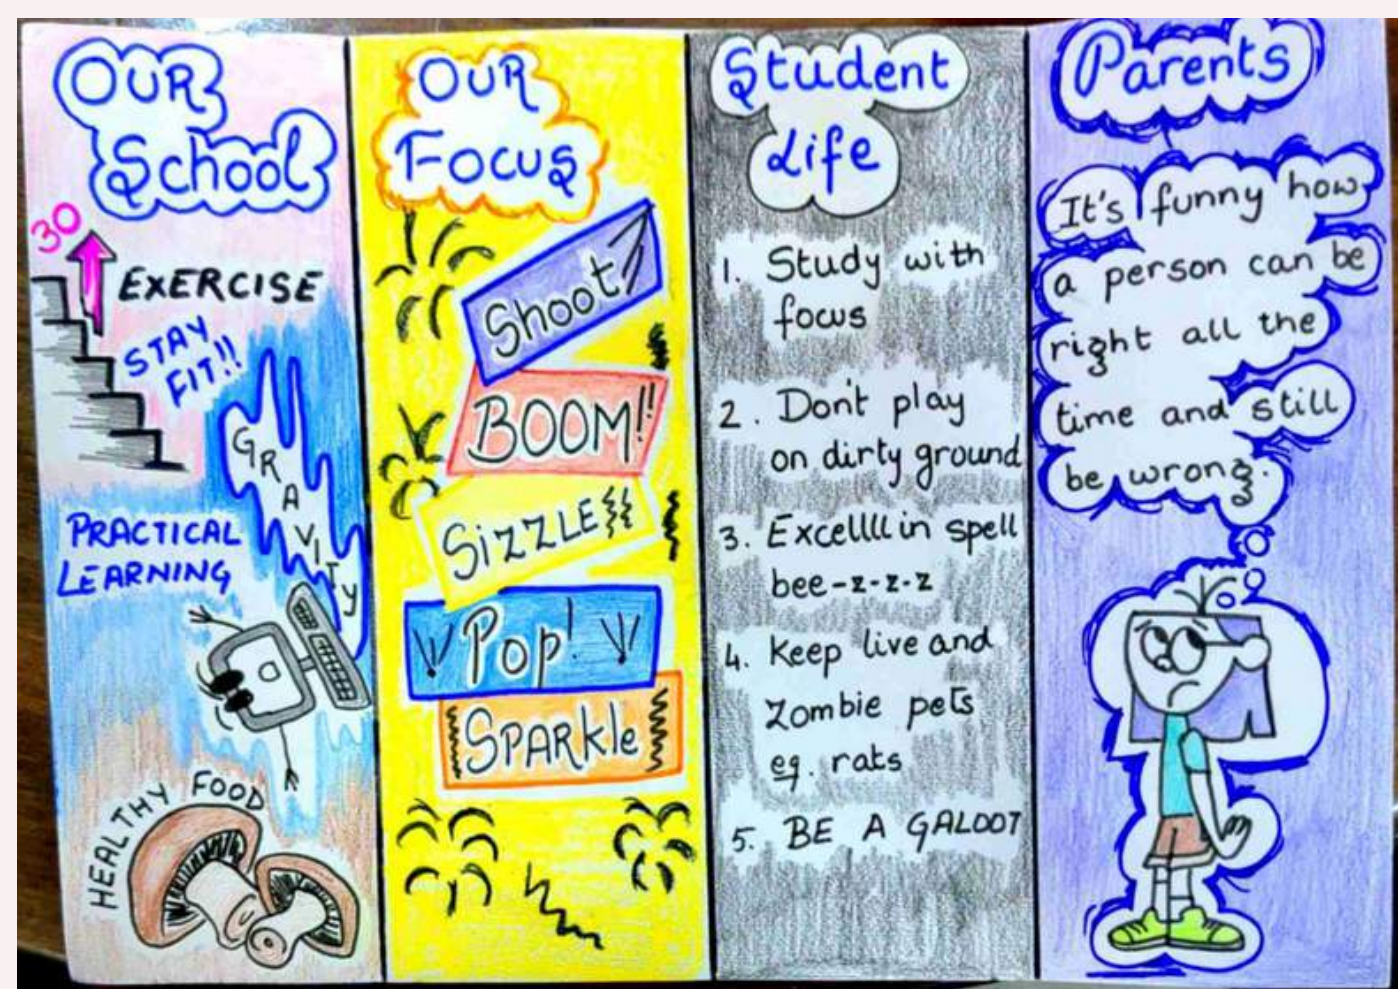 OUR
School
30
EXERCISE
STAY
FIT!!
GRAVITY
PRACTICAL
LEARNING
HEALTHY FOOD
OUR
FOCUS
Shoot
BOOM!!
SIZZLE
Pop!
SPARkle
Student
Life
1. Study with
focus
2. Don't play
on dirty ground
3. Excelllll in spell
bee-z-z-z-z
4. Keep live and
Zombie pets
eg. rats
5. BE A GALOOT
Parents
It's funny how
a person can be
right all the
time and still
be wrong.